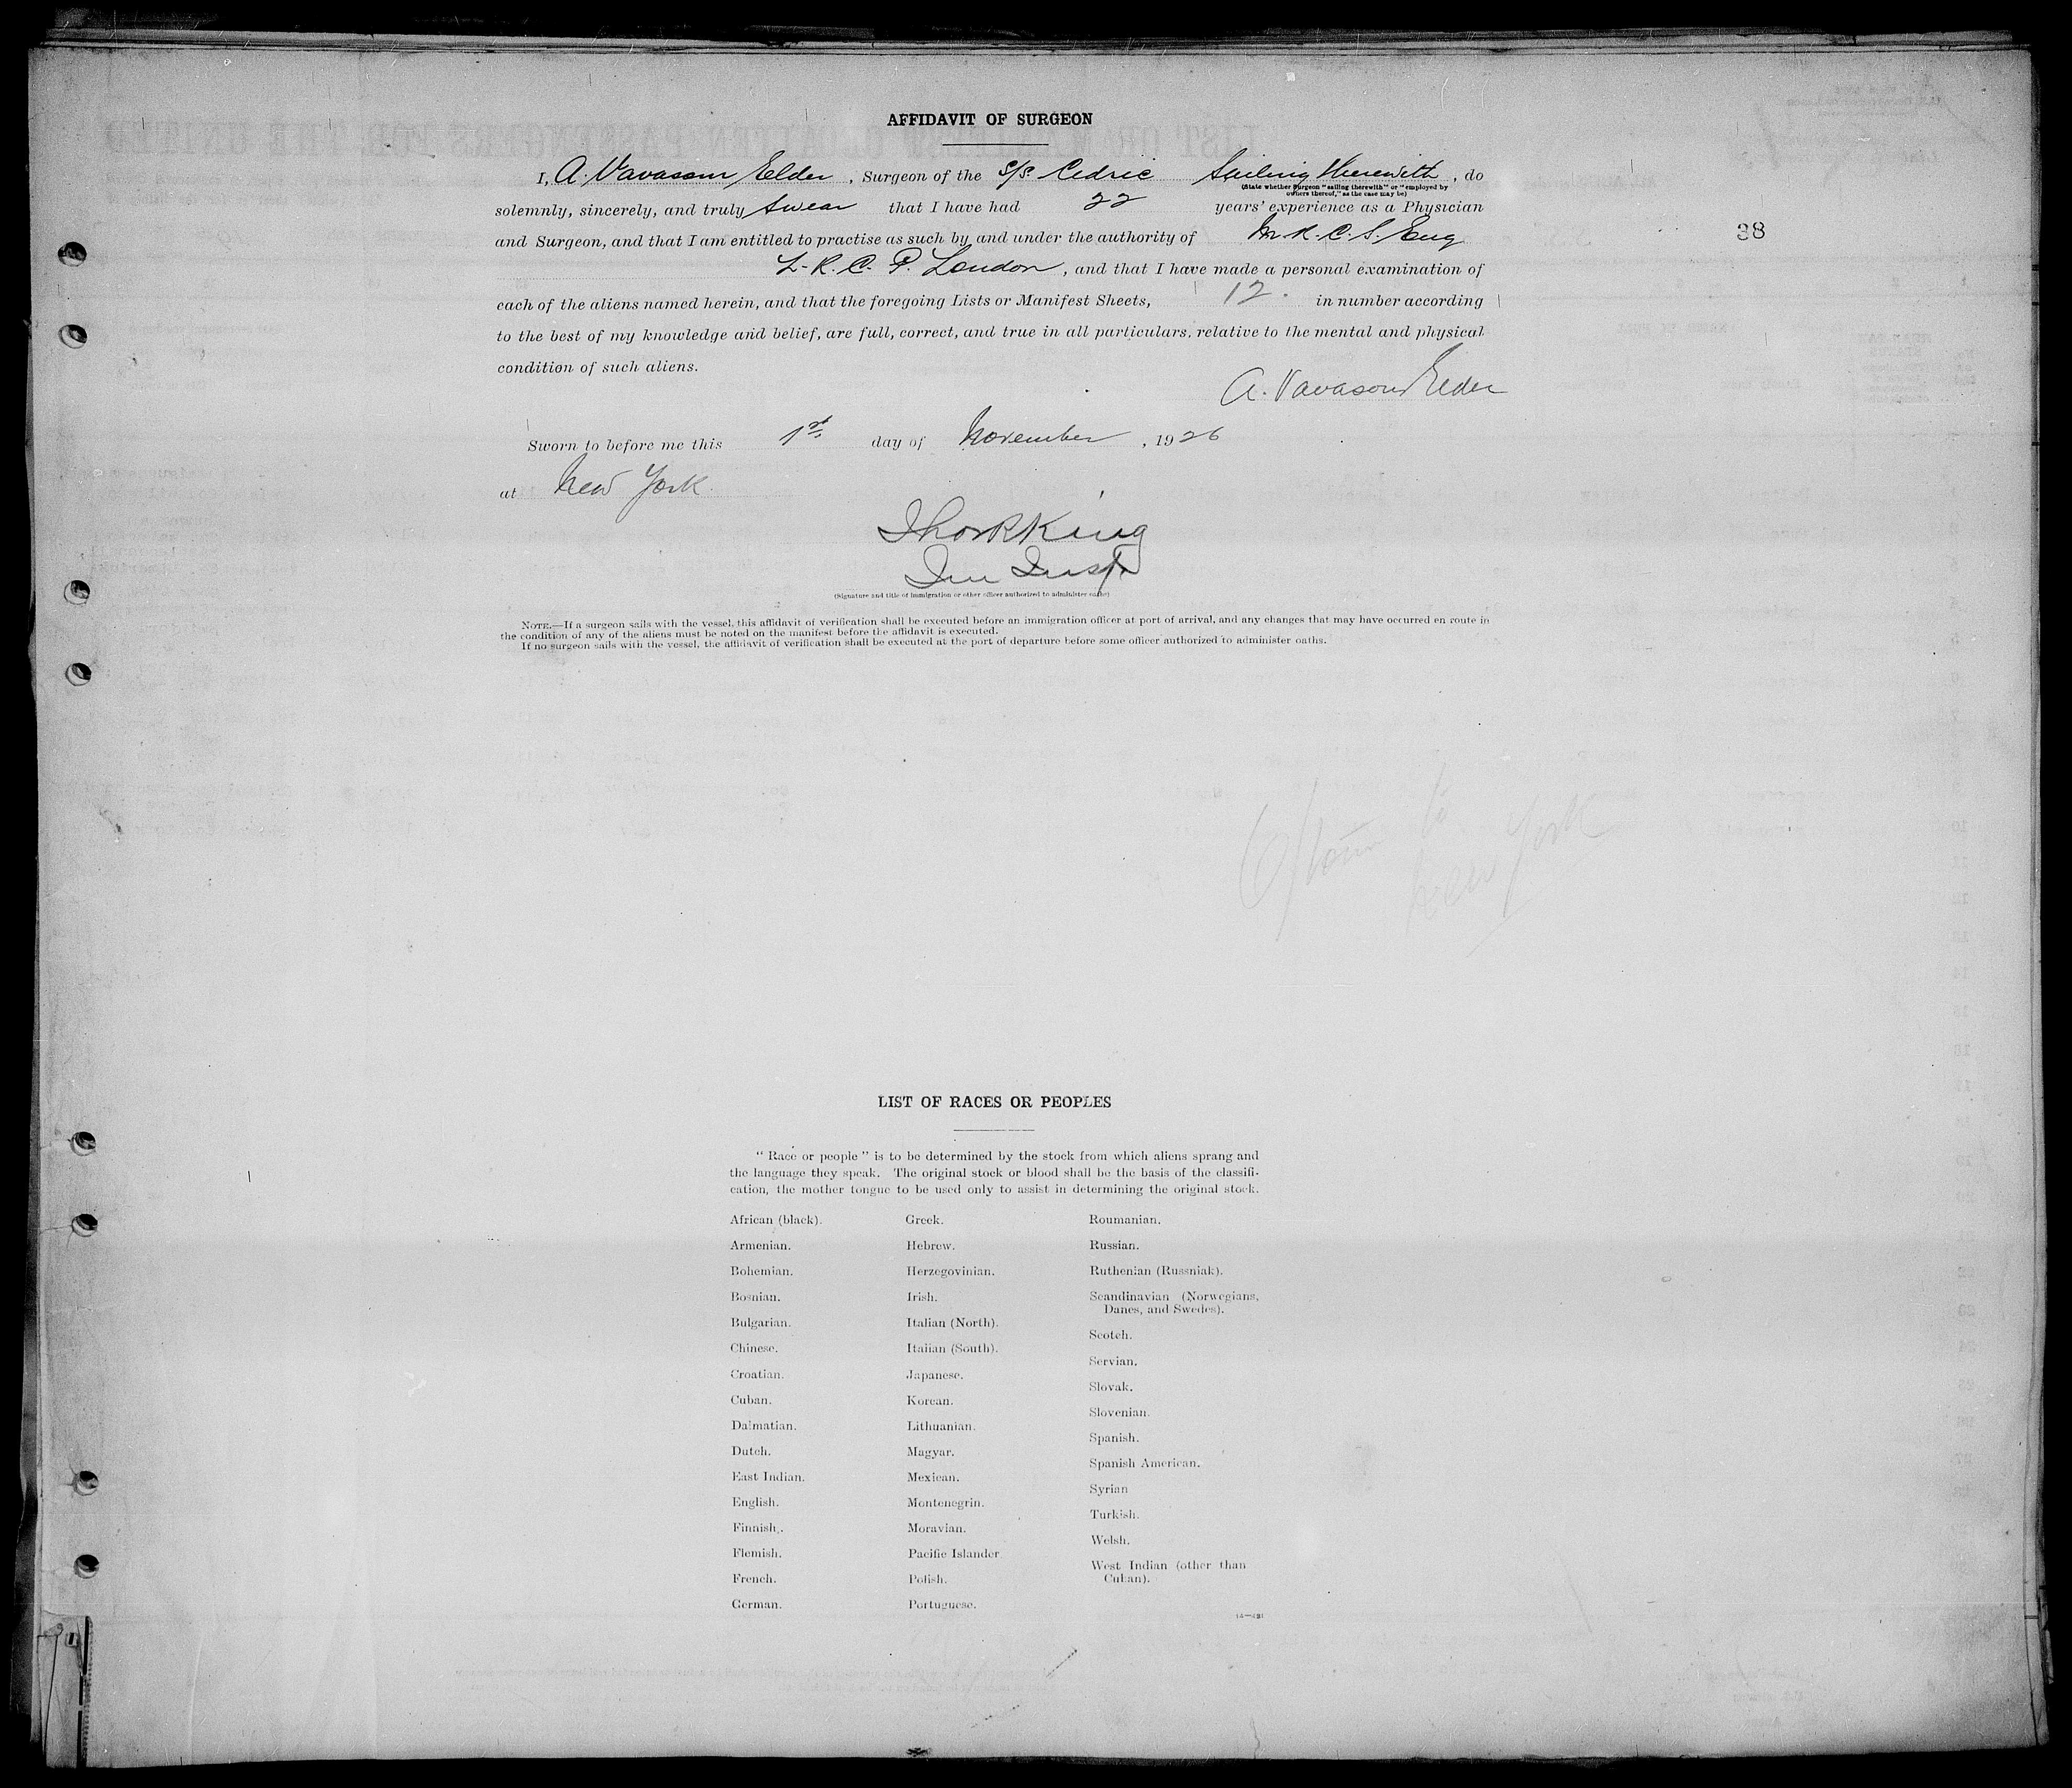 AFFIDAVIT OF SURGEON
I, A. Vavasour Elder, Surgeon of the S/S. Cedric Sailing Therewith, do
(State whether surgeon "sailing therewith" or "employed by
owners thereof," as the case may be)
solemnly, sincerely, and truly swear that I have had 22 years' experience as a Physician
and Surgeon, and that I am entitled to practise as such by and under the authority of M.R.C.S. Eng
38
L.R.C.P. London, and that I have made a personal examination of
each of the aliens named herein, and that the foregoing Lists or Manifest Sheets, 12. in number according
to the best of my knowledge and belief, are full, correct, and true in all particulars, relative to the mental and physical
condition of such aliens.
A. Vavasour Elder
Sworn to before me this 1st. day of November, 1926
at New York.
King
Im Insp.
(Signature and title of immigration or other officer authorized to administer oaths)
NOTE.—If a surgeon sails with the vessel, this affidavit of verification shall be executed before an immigration officer at port of arrival, and any changes that may have occurred en route in
the condition of any of the aliens must be noted on the manifest before the affidavit is executed.
If no surgeon sails with the vessel, the affidavit of verification shall be executed at the port of departure before some officer authorized to administer oaths.
to
New York
LIST OF RACES OR PEOPLES
"Race or people" is to be determined by the stock from which aliens sprang and
the language they speak. The original stock or blood shall be the basis of the classifi-
cation, the mother tongue to be used only to assist in determining the original stock.
African (black).
Armenian.
Bohemian.
Bosnian.
Bulgarian.
Chinese.
Croatian.
Cuban.
Dalmatian.
Dutch.
East Indian.
English.
Finnish.
Flemish.
French.
German.
Greek.
Hebrew.
Herzegovinian.
Irish.
Italian (North).
Italian (South).
Japanese.
Korean.
Lithuanian.
Magyar.
Mexican.
Montenegrin.
Moravian.
Pacific Islander
Polish.
Portuguese.
Roumanian.
Russian.
Ruthenian (Russniak).
Scandinavian (Norwegians,
Danes, and Swedes).
Scotch.
Servian.
Slovak.
Slovenian.
Spanish.
Spanish American.
Syrian
Turkish.
Welsh.
West Indian (other than
Cuban).
14—421